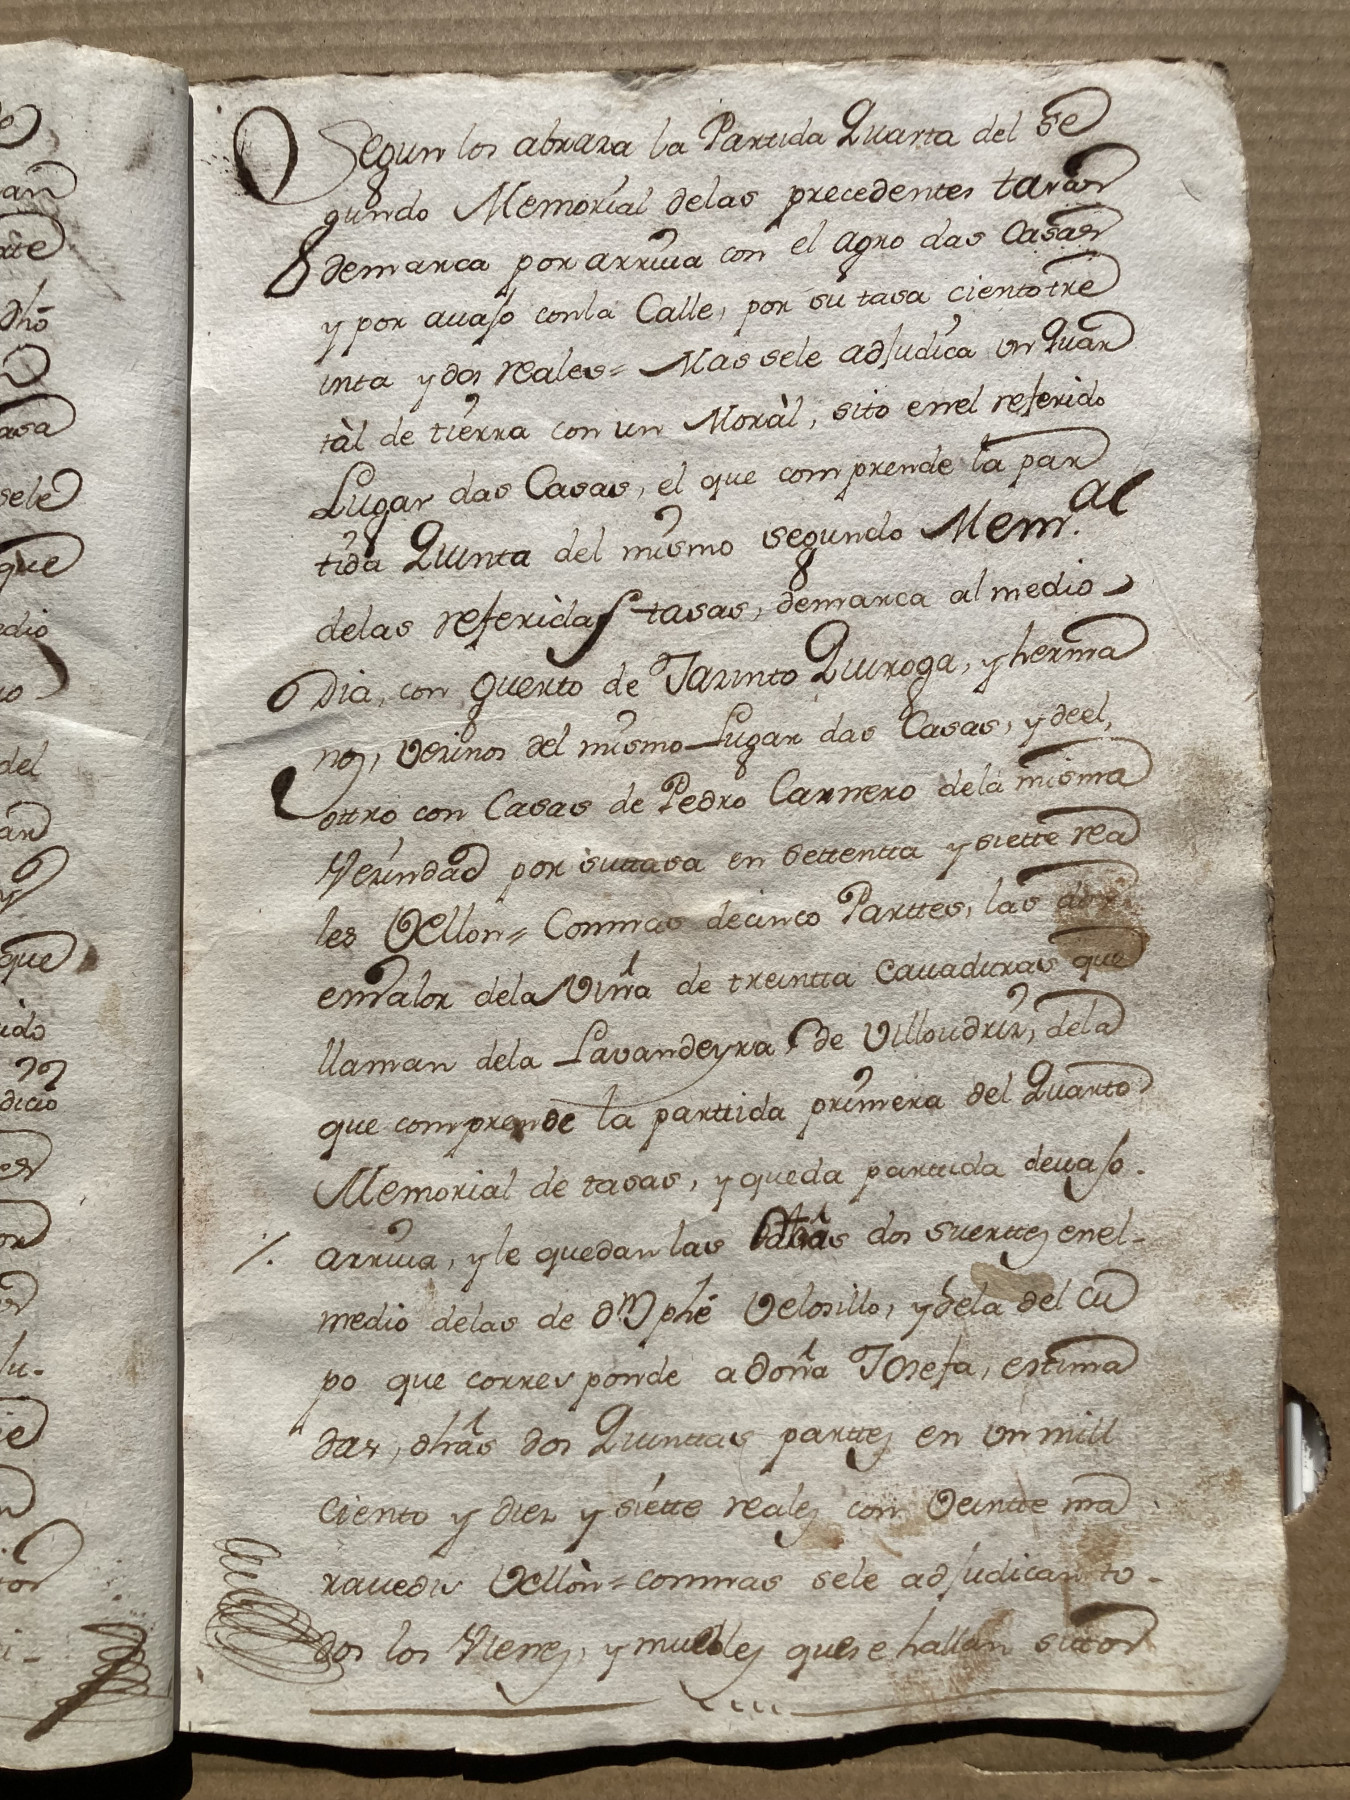 Segun los abraza la Partida Quarta del se
gundo Memorial delas precedentes tazas
demarca por arriua con el agro das Casas
y por auajo conla Calle, por su tasa ciento tre
inta y dos reales = Mas sele adjudica un Quar
tàl de tierra con un Moràl, sito enel referido
Lugar das Casas, el que comprende la par
tida Quinta del mismo segundo Mem.al
delas referidas tasas, demarca al medio
Dia, con Guerto de Jazinto Quiroga, y herma
nos, vezinos del mismo Lugar das Casas, y deel,
ottro con Casas de Pedro Carnero dela misma
Vezindad por suttasa en settentta y siette rea
les Vellon = Conmas decinco Parttes, las dos
enValor dela Viña de treintta Cauaduras que
llaman dela Lavandeyra de Villoudriz, dela
que comprende la parttida primera del Quarto
Memorial de tasas, y queda partida deuajo
arriua, y le quedan las dhas dos suerttes enel
medio delas de Dn Phe Velosillo, y dela del Cu
po que corresponde a doña Josefa, estima
das, dhas dos Quinttas parttes en un mill
Ciento y diez y siette reales con Veintte ma
rauedis Vellòn = conmas sele adjudican to
dos los Vienes, y muebles quese hallan sittos